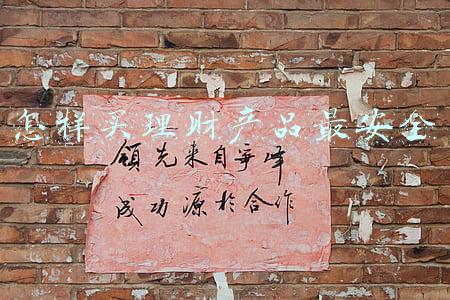 怎样买理财产品最安全
领先来自争峰
成功源於合作